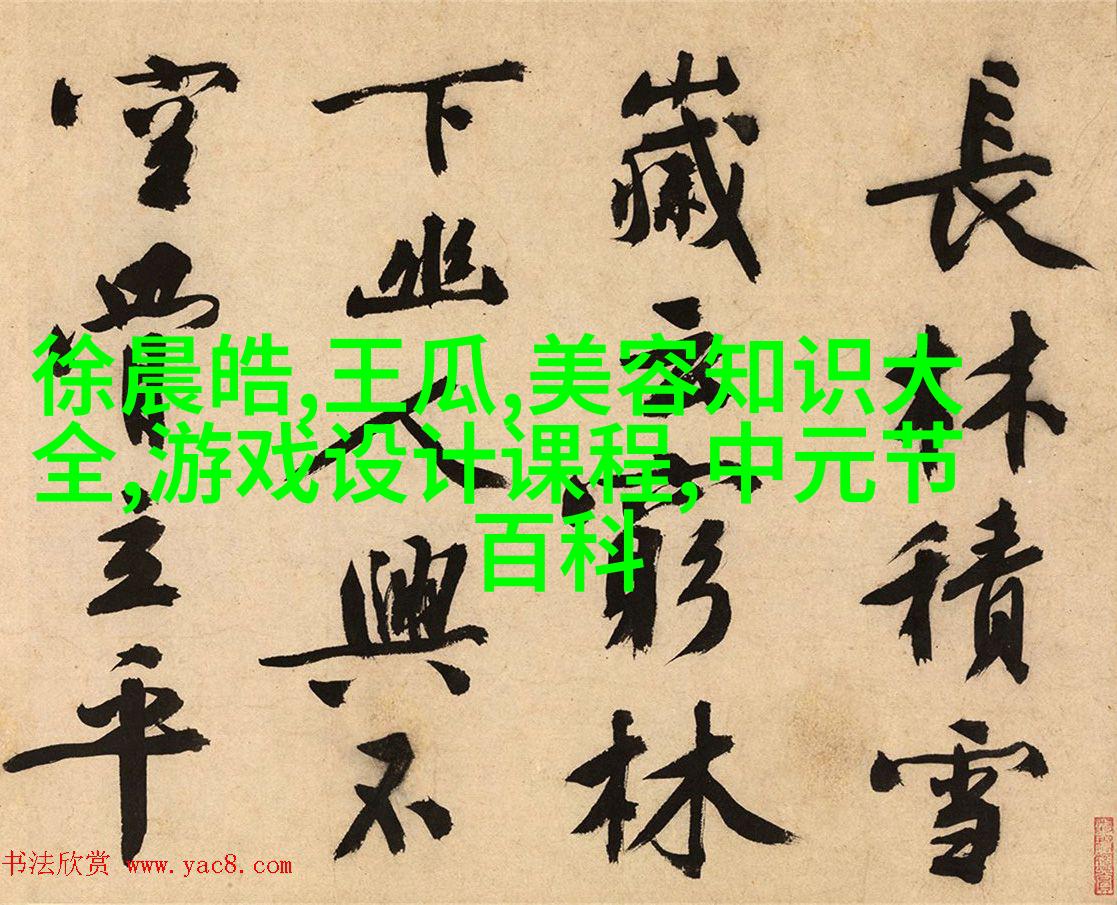 長林積雪
歲方窮林
下幽人興不
空立平
徐晨皓,王瓜,美容知识大
全,游戏设计课程,中元节
百科
书法欣赏 www.yac8.com